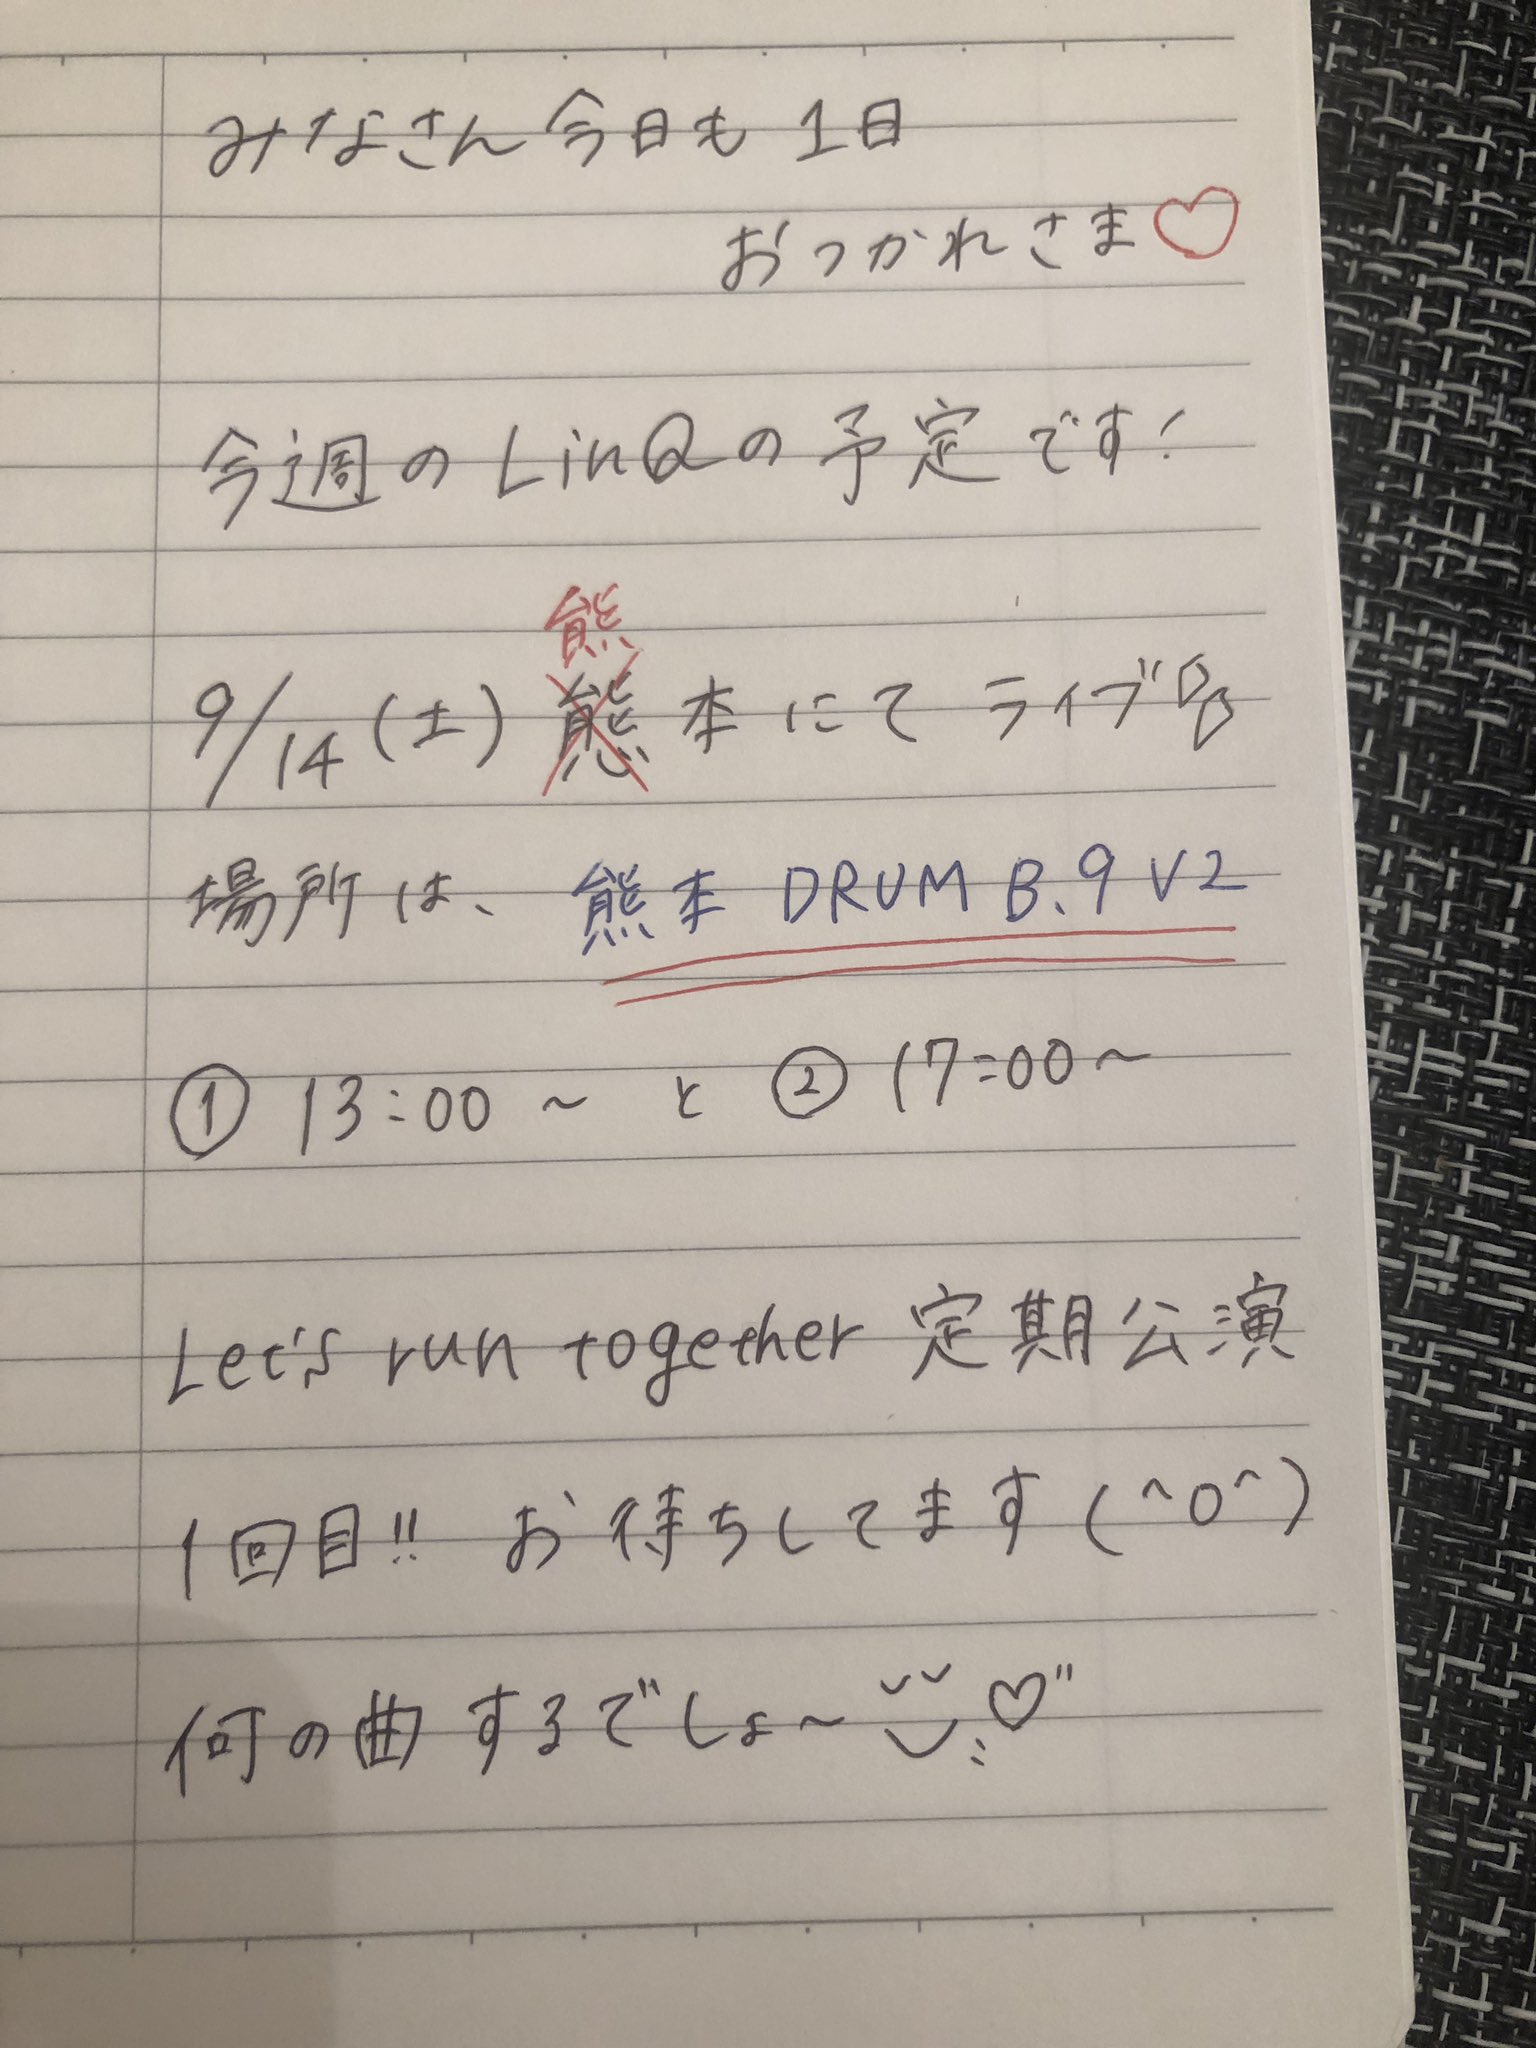 みなさん今日も1日
おつかれさま♡
今週のLinQの予定です!
熊
9/14(土)態本にてライブ
場所は、熊本 DRUM B.9 V2
① 13:00~ と ② 17:00~
Let's run together 定期公演
1回目!! お待ちしてます(^o^)
何の曲するでしょ~♡"